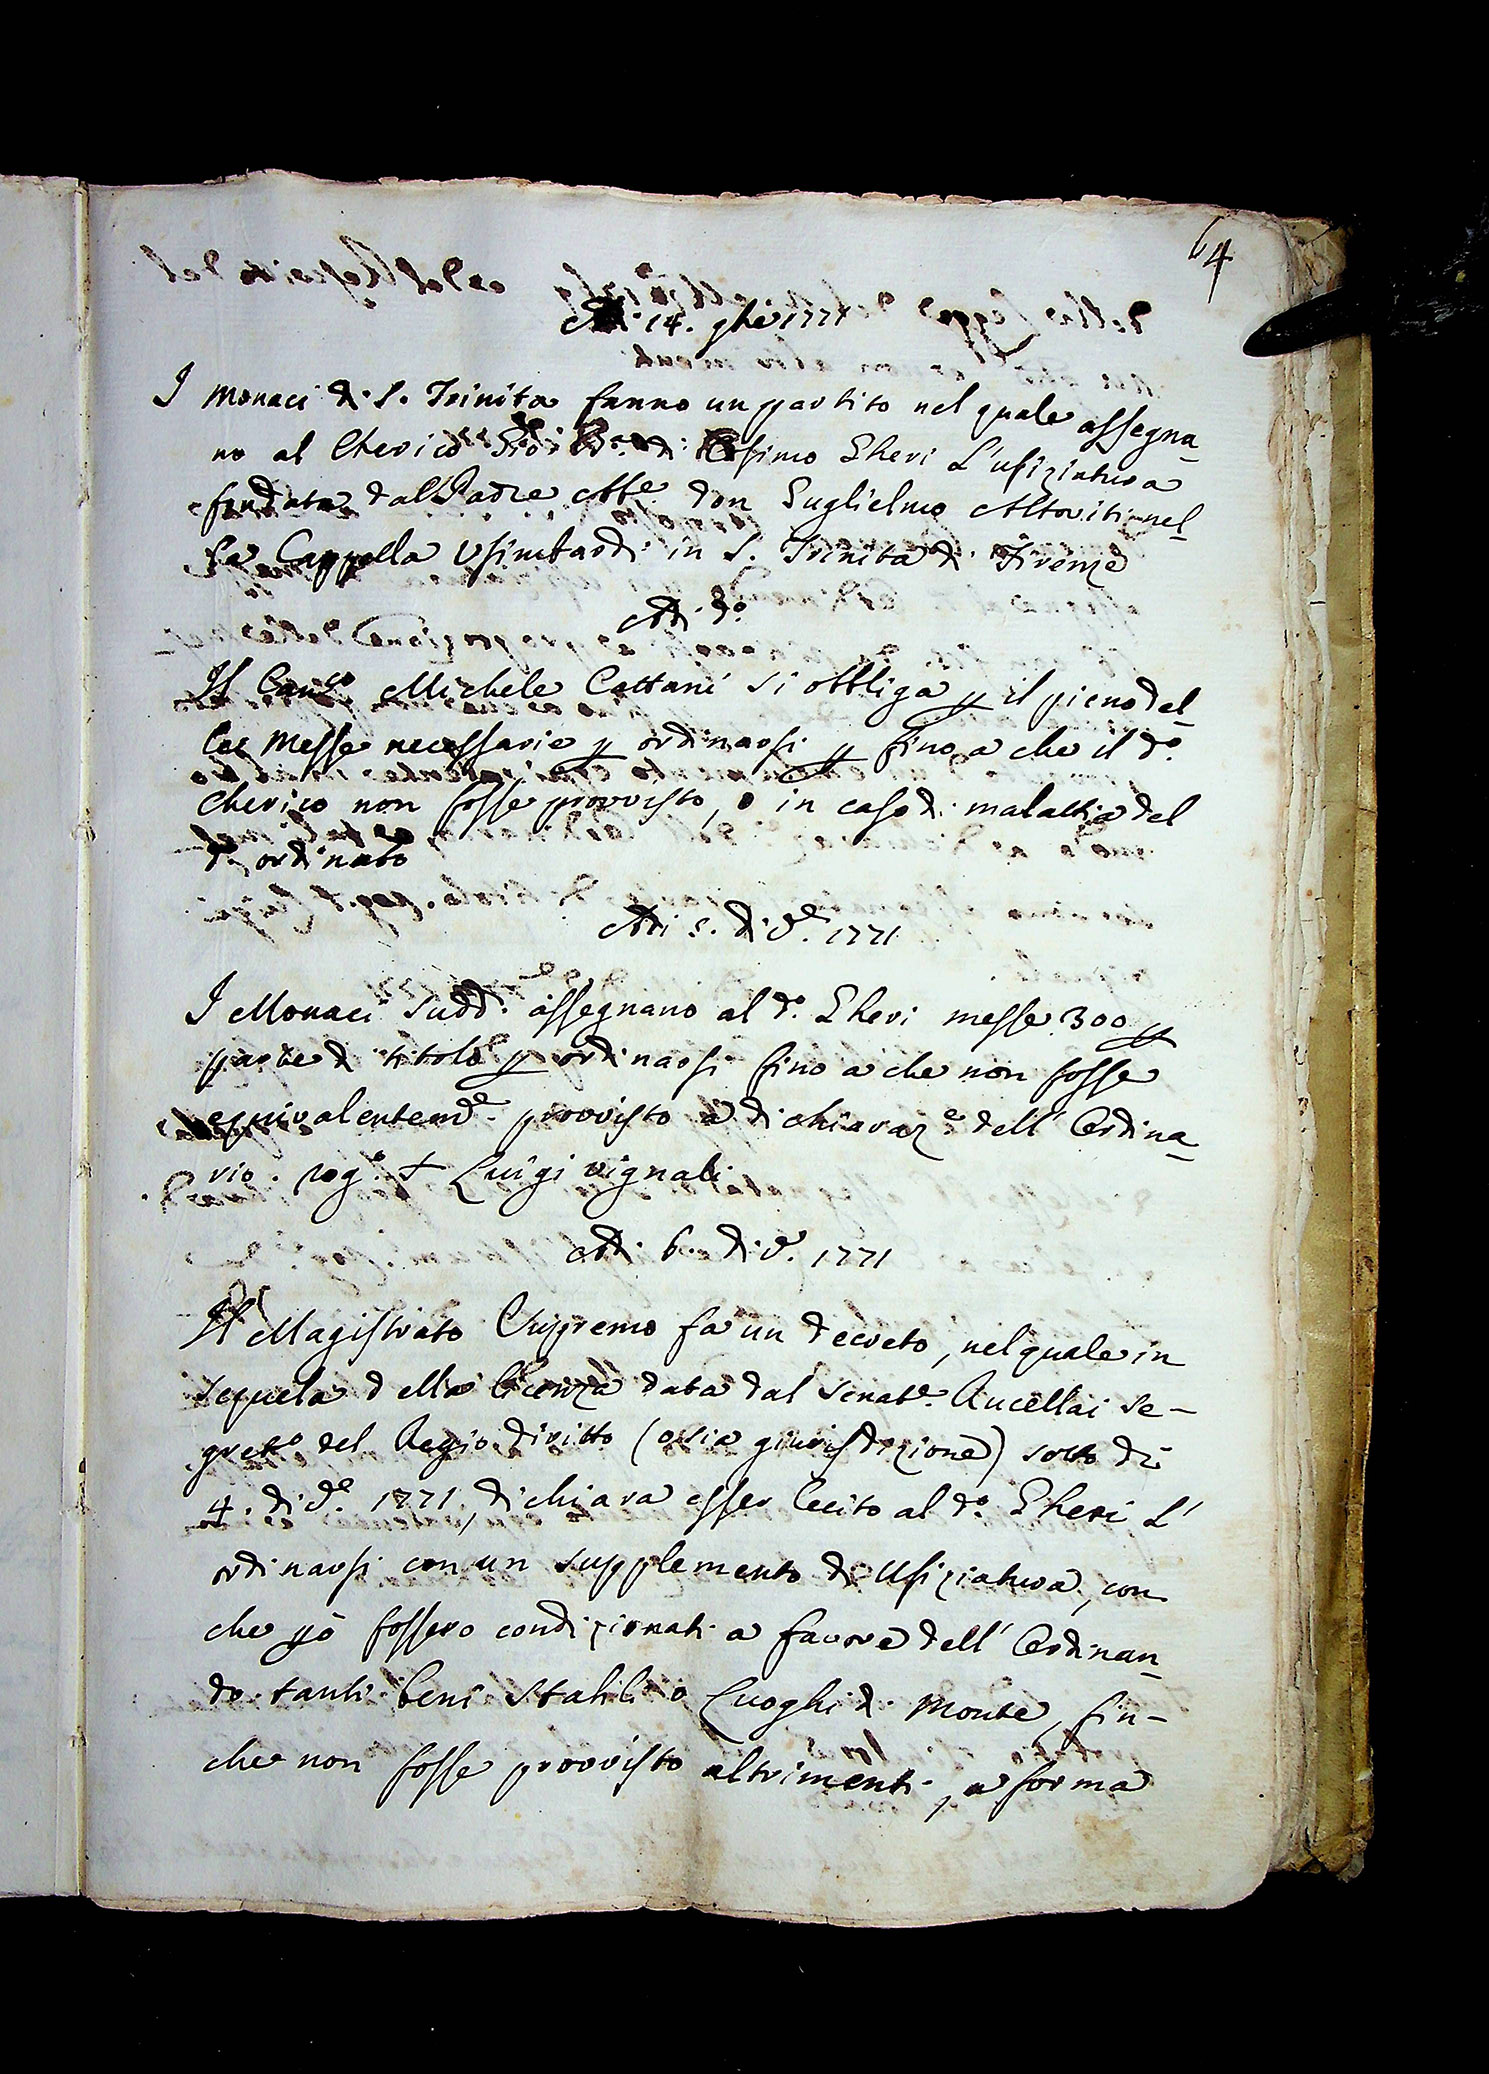 64
Adi 14. 9bre 1771
I Monaci di S. Trinita fanno un partito nel quale assegna
no al Cherico Gio: Ba. di Cosimo Gheri L'ufiziatura
fondata dal Padre Abe. don Guglielmo Altoviti nel
la Cappella Usimbardi in S. Trinita di Firenze
Adi do.
Il Canco. Michele Cattani si obbliga p il pieno del
le Messe necessarie p ordinarsi p fino a che il do.
Cherico non fosse provvisto, o in caso di malattia del
do. ordinato
Adi 5. di Xe. 1771
I Monaci sudd. assegnano al do. Gheri messe 300 p
parte di titolo p ordinarsi fino a che non fosse
equivalentemte. provvisto a dichiaraze. dell' Ordina
rio. rogo. + Luigi vignali
Adi 6. di Xe. 1771
Il Magistrato Supremo fa un decreto, nel quale in
sequela della licenza data dal Senate. Rucellai Se-
greto. del Regio diritto (o sia giurisdizione) sotto di
4. di Xe. 1771, dichiara esser lecito al do. Gheri L'
ordinarsi con un supplemento di Ufiziatura, con
che pò fossero condizionati a favore dell' Ordinan
do tanti beni stabili o Luoghi di Monte, fin-
che non fosse provvisto altrimenti, a forma